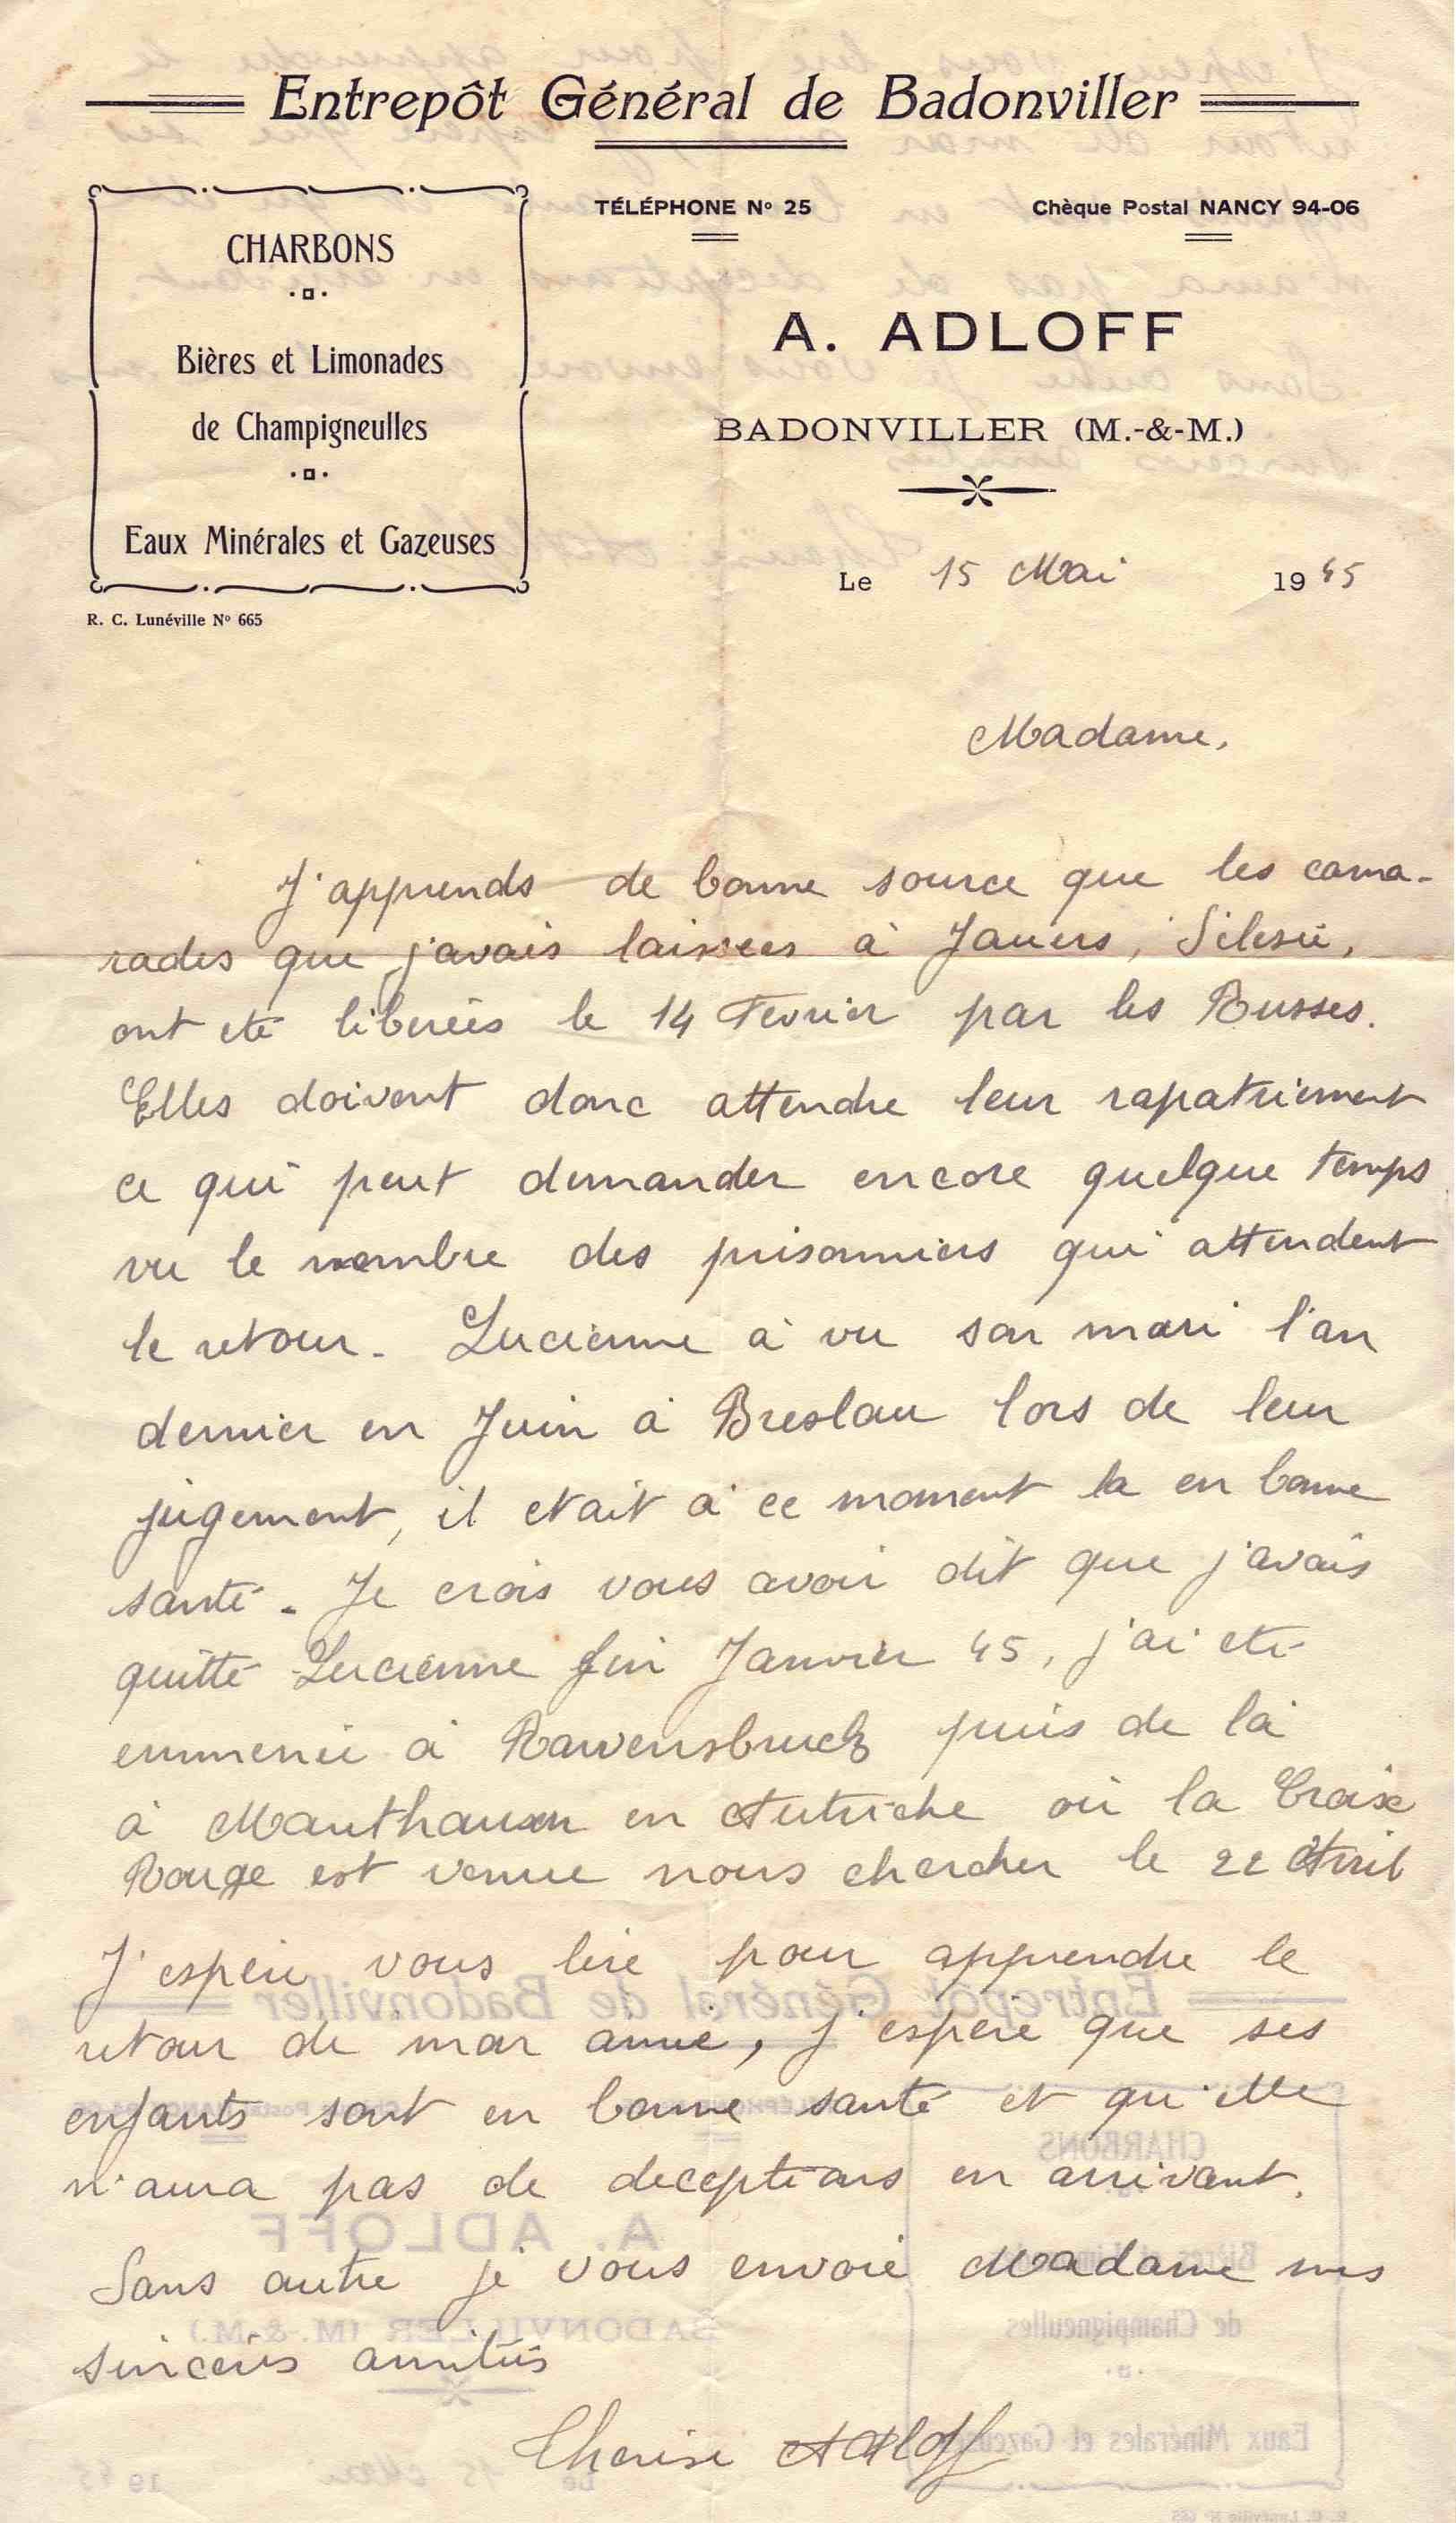 Entrepôt Général de Badonviller
CHARBONS
Bières et Limonades
de Champigneulles
Eaux Minérales et Gazeuses
R. C. Lunéville Nº 665
TÉLÉPHONE Nº 25
Chèque Postal NANCY 94-06
A. ADLOFF
BADONVILLER (M.-&-M.)
Le 15 Mai 1945
Madame,
J'apprends de bonne source que les cama-
rades que j'avais laissées à Jauers, Silesie,
ont eté liberées le 14 Fevrier par les Russes.
Elles doivent donc attendre leur rapatriement
ce qui peut demander encore quelque temps
vu le nombre des prisonniers qui attendent
le retour. Lucienne à vu son mari l'an
dernier en Juin à Breslau lors de leur
jugement, il etait à ce moment la en bonne
santé. Je crois vous avoir dit que j'avais
quitté Lucienne fin Janvier 45, j'ai eté
emmenée à Rawensbruck puis de là
à Mauthausen en Autriche où la Croix
Rouge est venue nous chercher le 22 Avril
J'espère vous lire pour apprendre le
retour de mon amie, j'espère que ses
enfants sont en bonne santé et qu'elle
n'aura pas de deceptions en arrivant.
Sans autre je vous envoie Madame mes
sincères amitiés
Therese Adloff